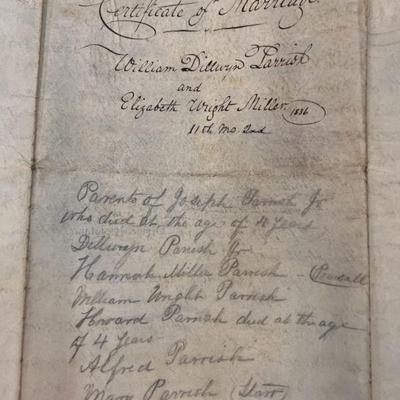 Certificate of Marriage
William Dillwyn Parrish
and
Elizabeth Wright Miller 1836
11th Mo. 2nd
Parents of Joseph Parrish Jr
who died at the age of 4 years
Dillwyn Parrish Jr
Hannah Miller Parrish -
William Wright Parrish
Howard Parrish died at the age
of 4 years
Alfred Parrish
Mary Parrish (Starr)